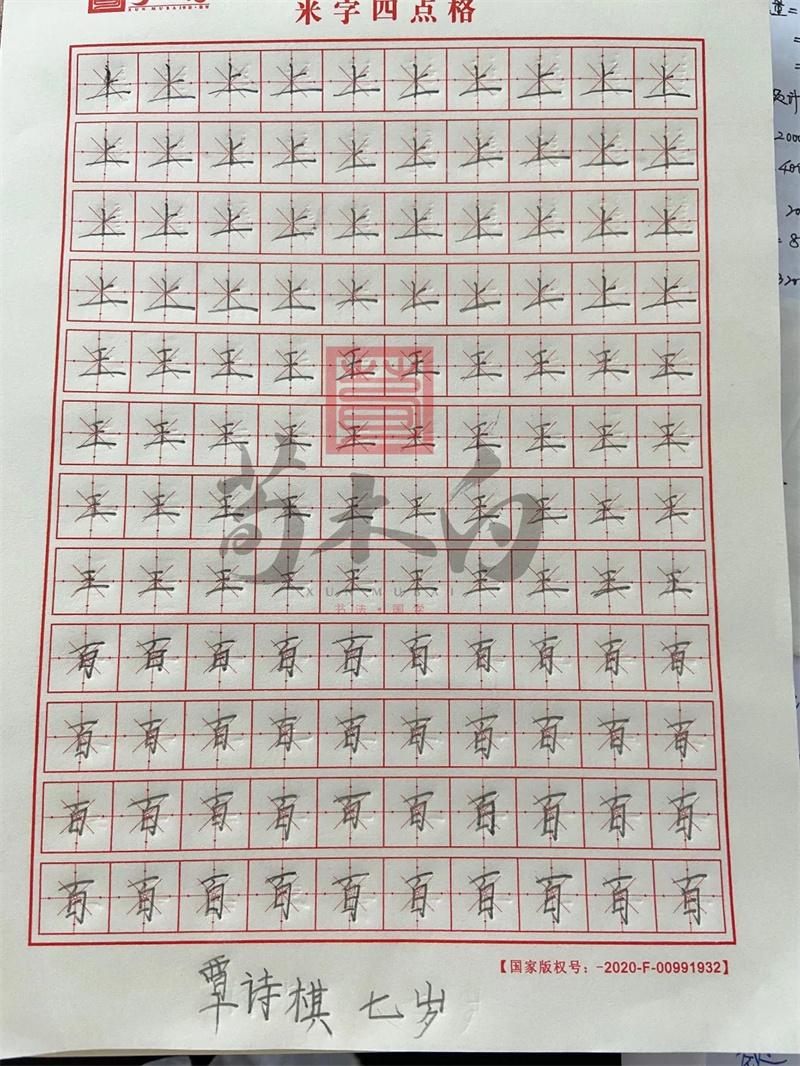 米字四点格
上上上上上上上上上上
上上上上上上上上上上
上上上上上上上上上上
上上上上上上上上上上
王王王王王王王王王王
王王王王王王王王王王
王王王王王王王王王王
王王王王王王王王王王
荀木白
XUN MUBAI
书法·国学
百百百百百百百百百百
百百百百百百百百百百
百百百百百百百百百百
百百百百百百百百百百
【国家版权号：-2020-F-00991932】
覃诗棋 七岁